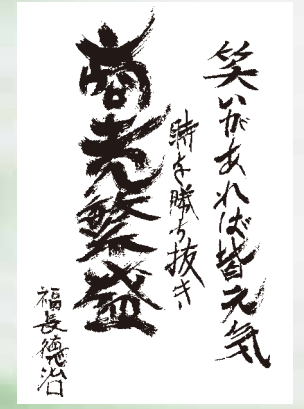 笑いがあれば皆元気
時を勝ち抜き
商売繁盛
福長德治